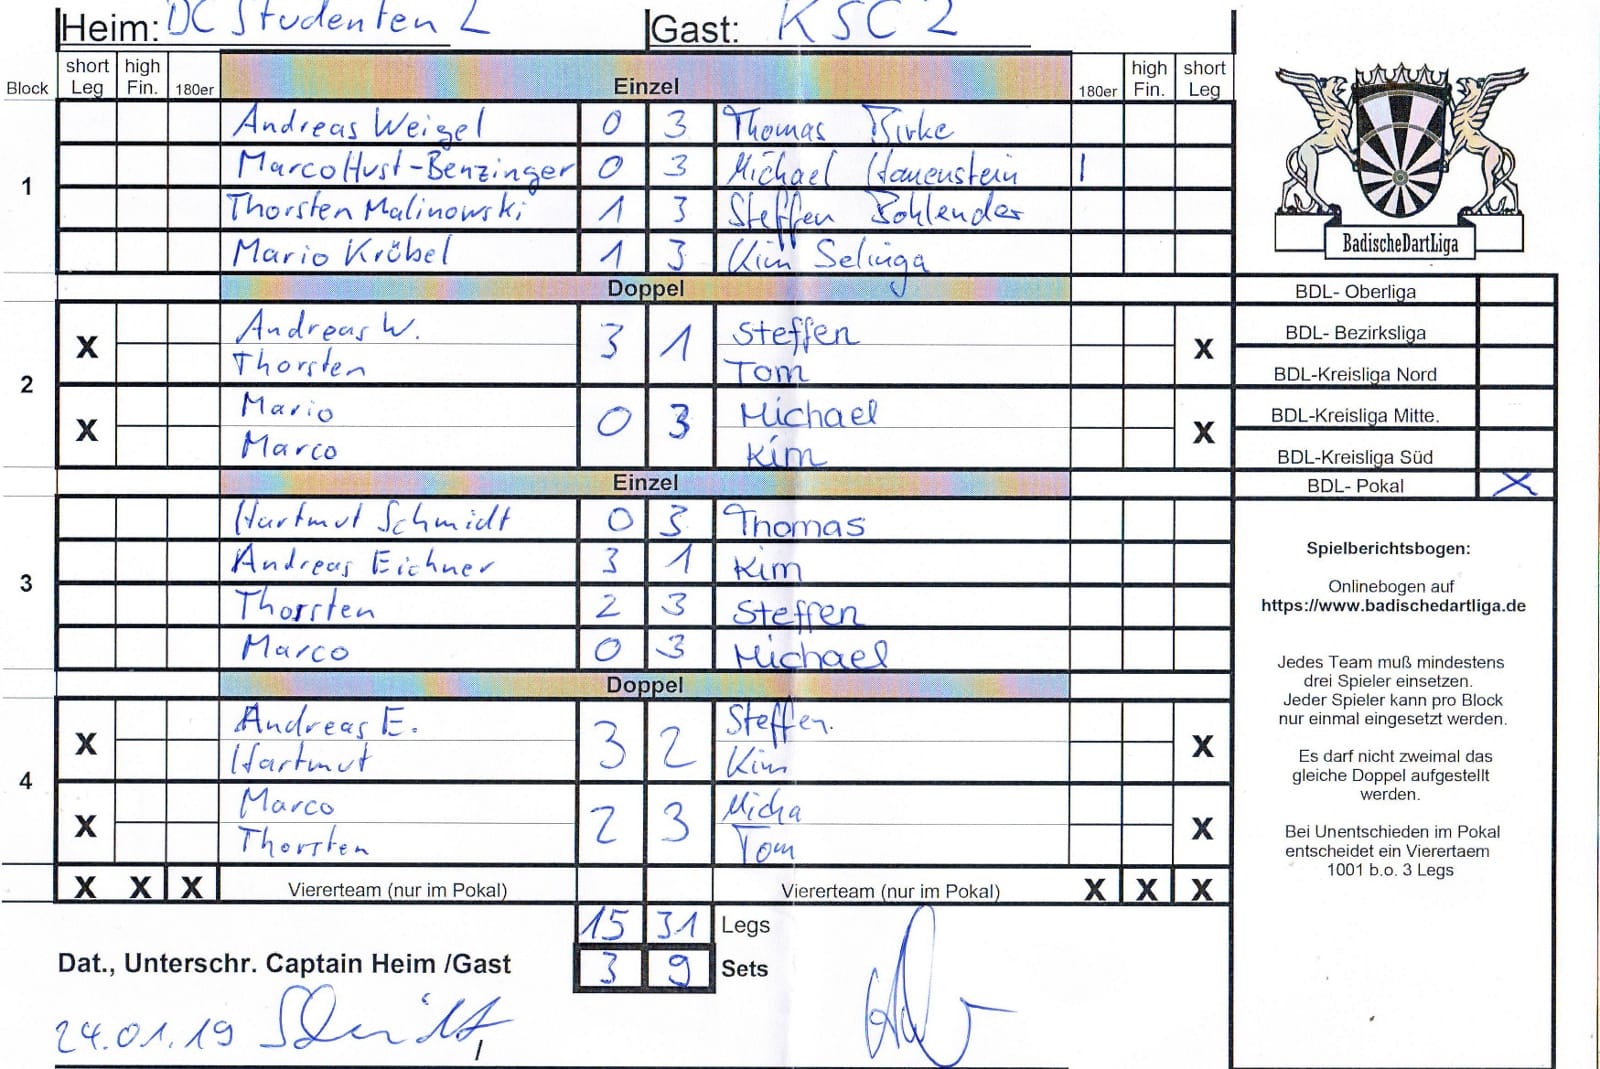 Heim: DC Studenten 2 Gast: KSC 2
Block short Leg high Fin. 180er Einzel 180er high Fin. short Leg
1
Andreas Weigel 0 3 Thomas Birke
Marco Hust-Benzinger 0 3 Michael Hauenstein 1
Thorsten Malinowski 1 3 Steffen Bohlender
Mario Kröbel 1 3 Kim Selinga
Doppel
2
X Andreas W. 3 1 Steffen X
Thorsten Tom
X Mario 0 3 Michael X
Marco Kim
Einzel
3
Hartmut Schmidt 0 3 Thomas
Andreas Eichner 3 1 Kim
Thorsten 2 3 Steffen
Marco 0 3 Michael
Doppel
4
X Andreas E. 3 2 Steffen. X
Hartmut Kim
X Marco 2 3 Micha X
Thorsten Tom
X X X Viererteam (nur im Pokal) Viererteam (nur im Pokal) X X X
15 31 Legs
Dat., Unterschr. Captain Heim /Gast 3 9 Sets
24.01.19 Schmidt
BadischeDartLiga
BDL- Oberliga
BDL- Bezirksliga
BDL-Kreisliga Nord
BDL-Kreisliga Mitte.
BDL-Kreisliga Süd
BDL- Pokal X
Spielberichtsbogen:
Onlinebogen auf
https://www.badischedartliga.de
Jedes Team muß mindestens
drei Spieler einsetzen.
Jeder Spieler kann pro Block
nur einmal eingesetzt werden.
Es darf nicht zweimal das
gleiche Doppel aufgestellt
werden.
Bei Unentschieden im Pokal
entscheidet ein Vierertaem
1001 b.o. 3 Legs